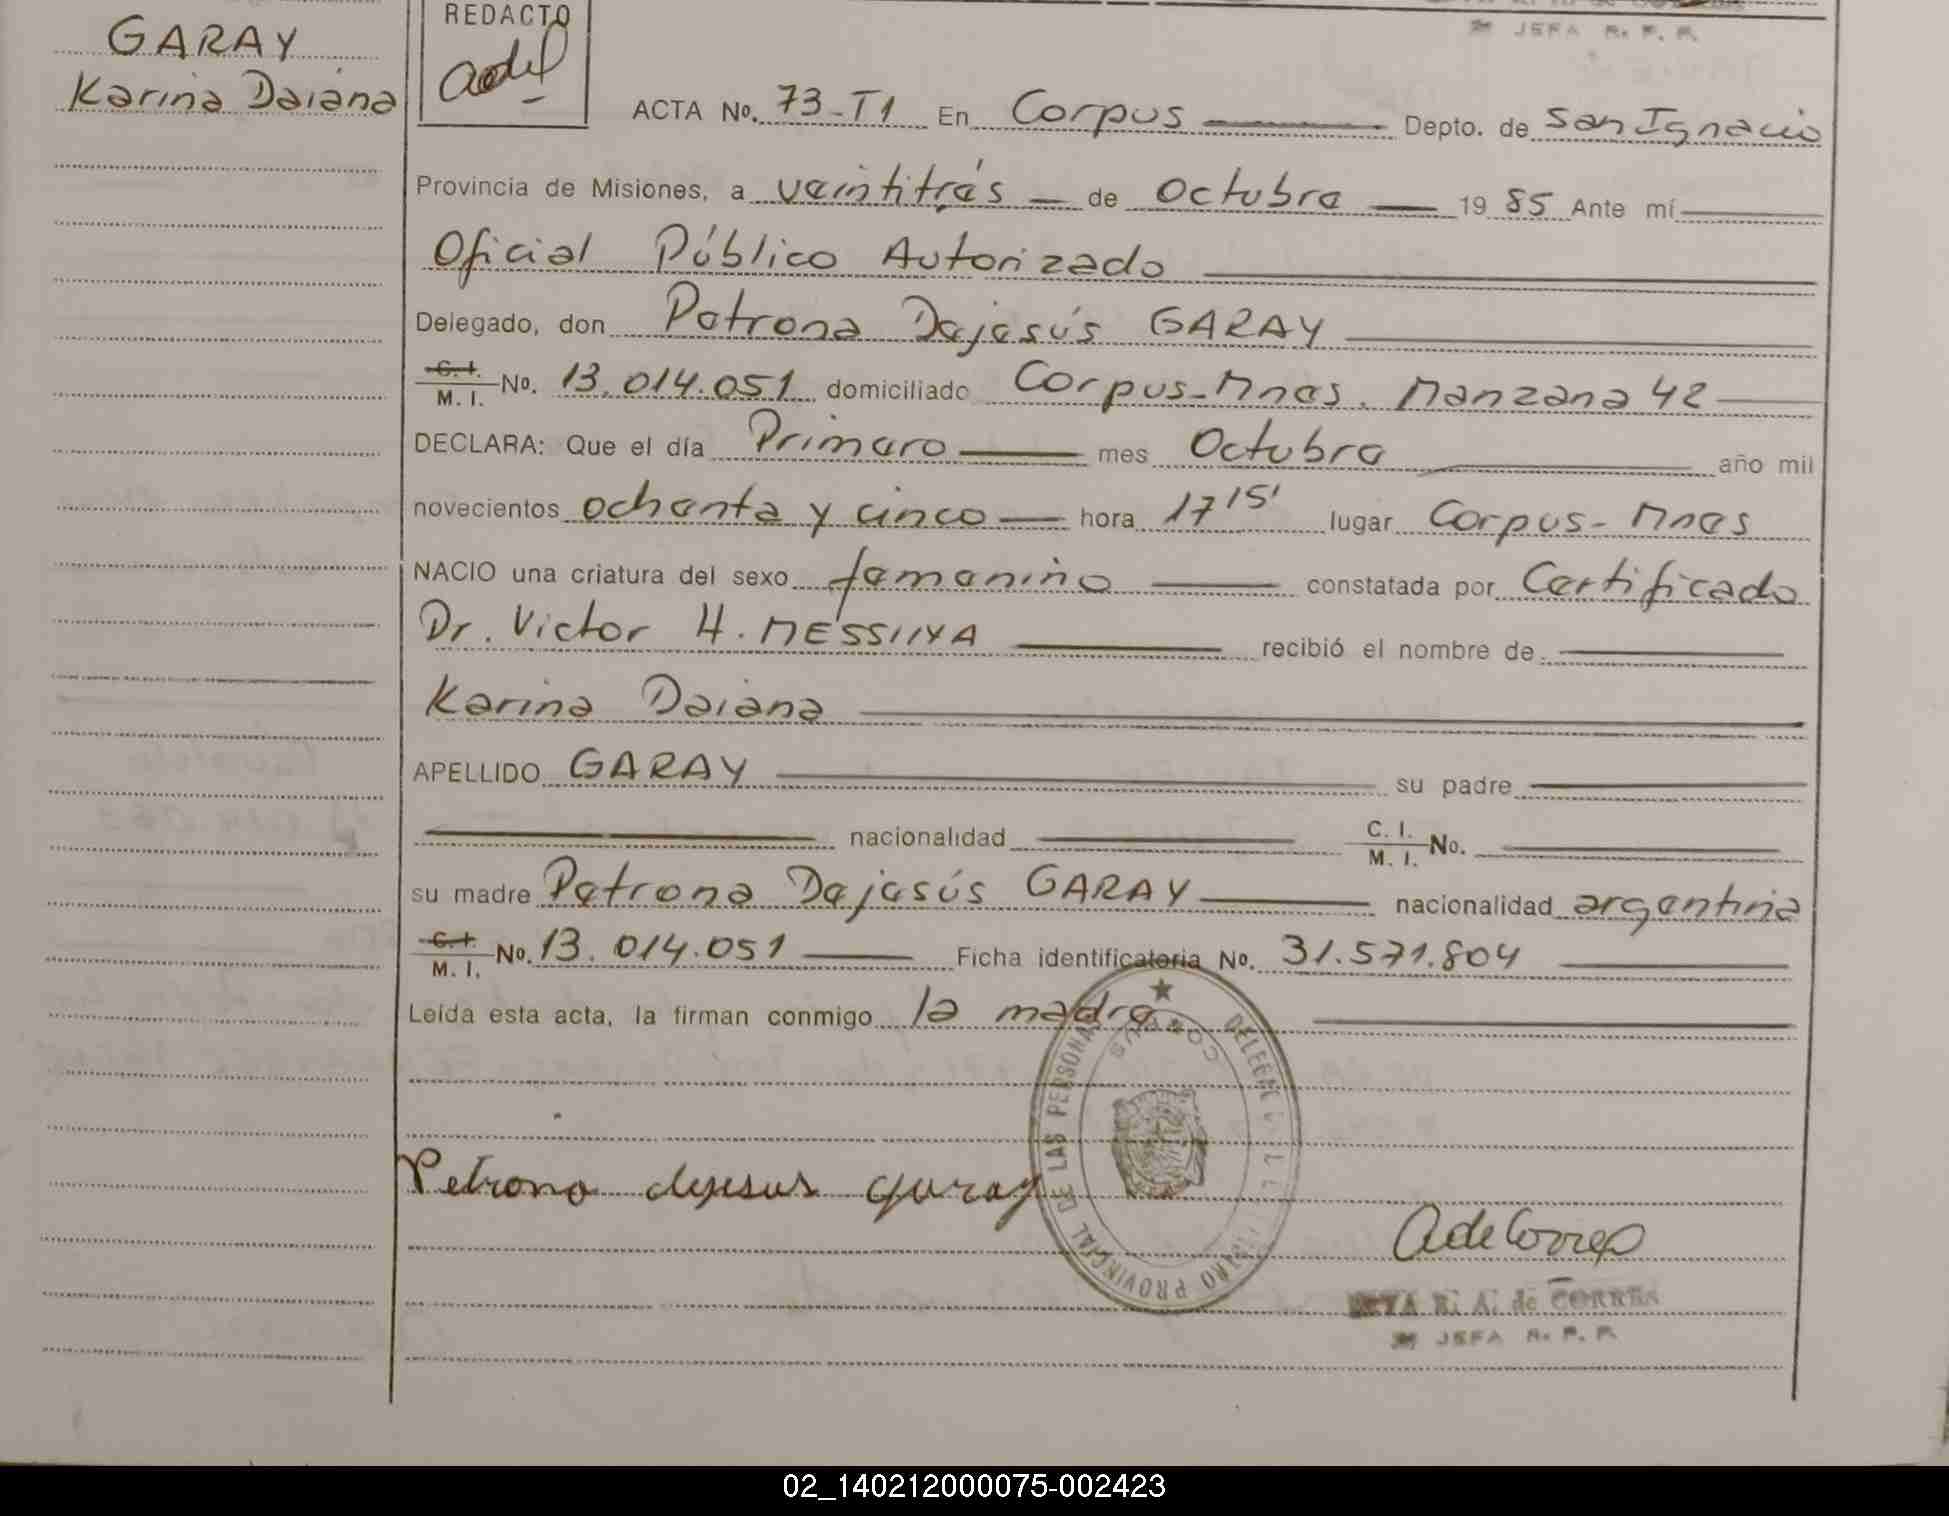 GARAY
Karina Daiana
REDACTO
ACTA No. 73-T1 En Corpus Depto. de San Ignacio
Provincia de Misiones, a veintitrés de Octubre 19 85 Ante mí
Oficial Público Autorizado
Delegado, don Petrona Dejesús GARAY
C. I. / M. I. No. 13.014.051 domiciliado Corpus-Mnes. Manzana 42
DECLARA: Que el día Primero mes Octubre año mil
novecientos ochenta y cinco hora 17 15' lugar Corpus-Mnes
NACIO una criatura del sexo femenino constatada por Certificado
Dr. Victor H. MESSINA recibió el nombre de
Karina Daiana
APELLIDO GARAY su padre
nacionalidad C. I. / M. I. No.
su madre Petrona Dejesús GARAY nacionalidad argentina
C. I. / M. I. No. 13.014.051 Ficha identificatoria No. 31.571.804
Leída esta acta, la firman conmigo la madre
Petrona dejesus garay
A de Correa
R. A. de CORREA
JEFA R. P. P.
REGISTRO PROVINCIAL DE LAS PERSONAS
CORPUS
02_140212000075-002423